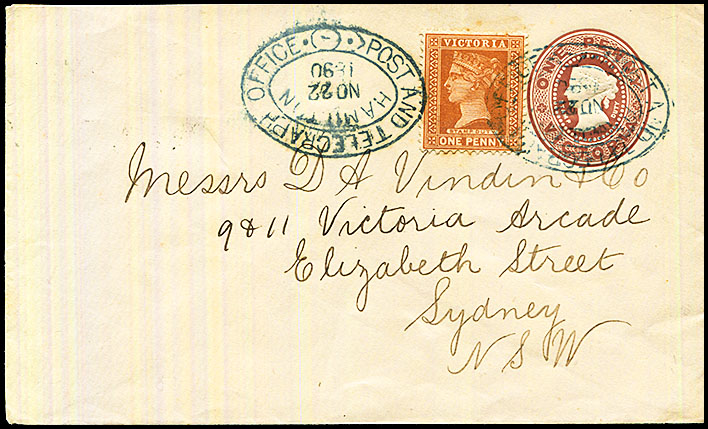 POST AND TELEGRAPH OFFICE
HAMILTON
NO 22
1890
VICTORIA
STAMP DUTY
ONE PENNY
ONE PENNY
NO 22
Messrs D A Vindin & Co
9 & 11 Victoria Arcade
Elizabeth Street
Sydney
N S W